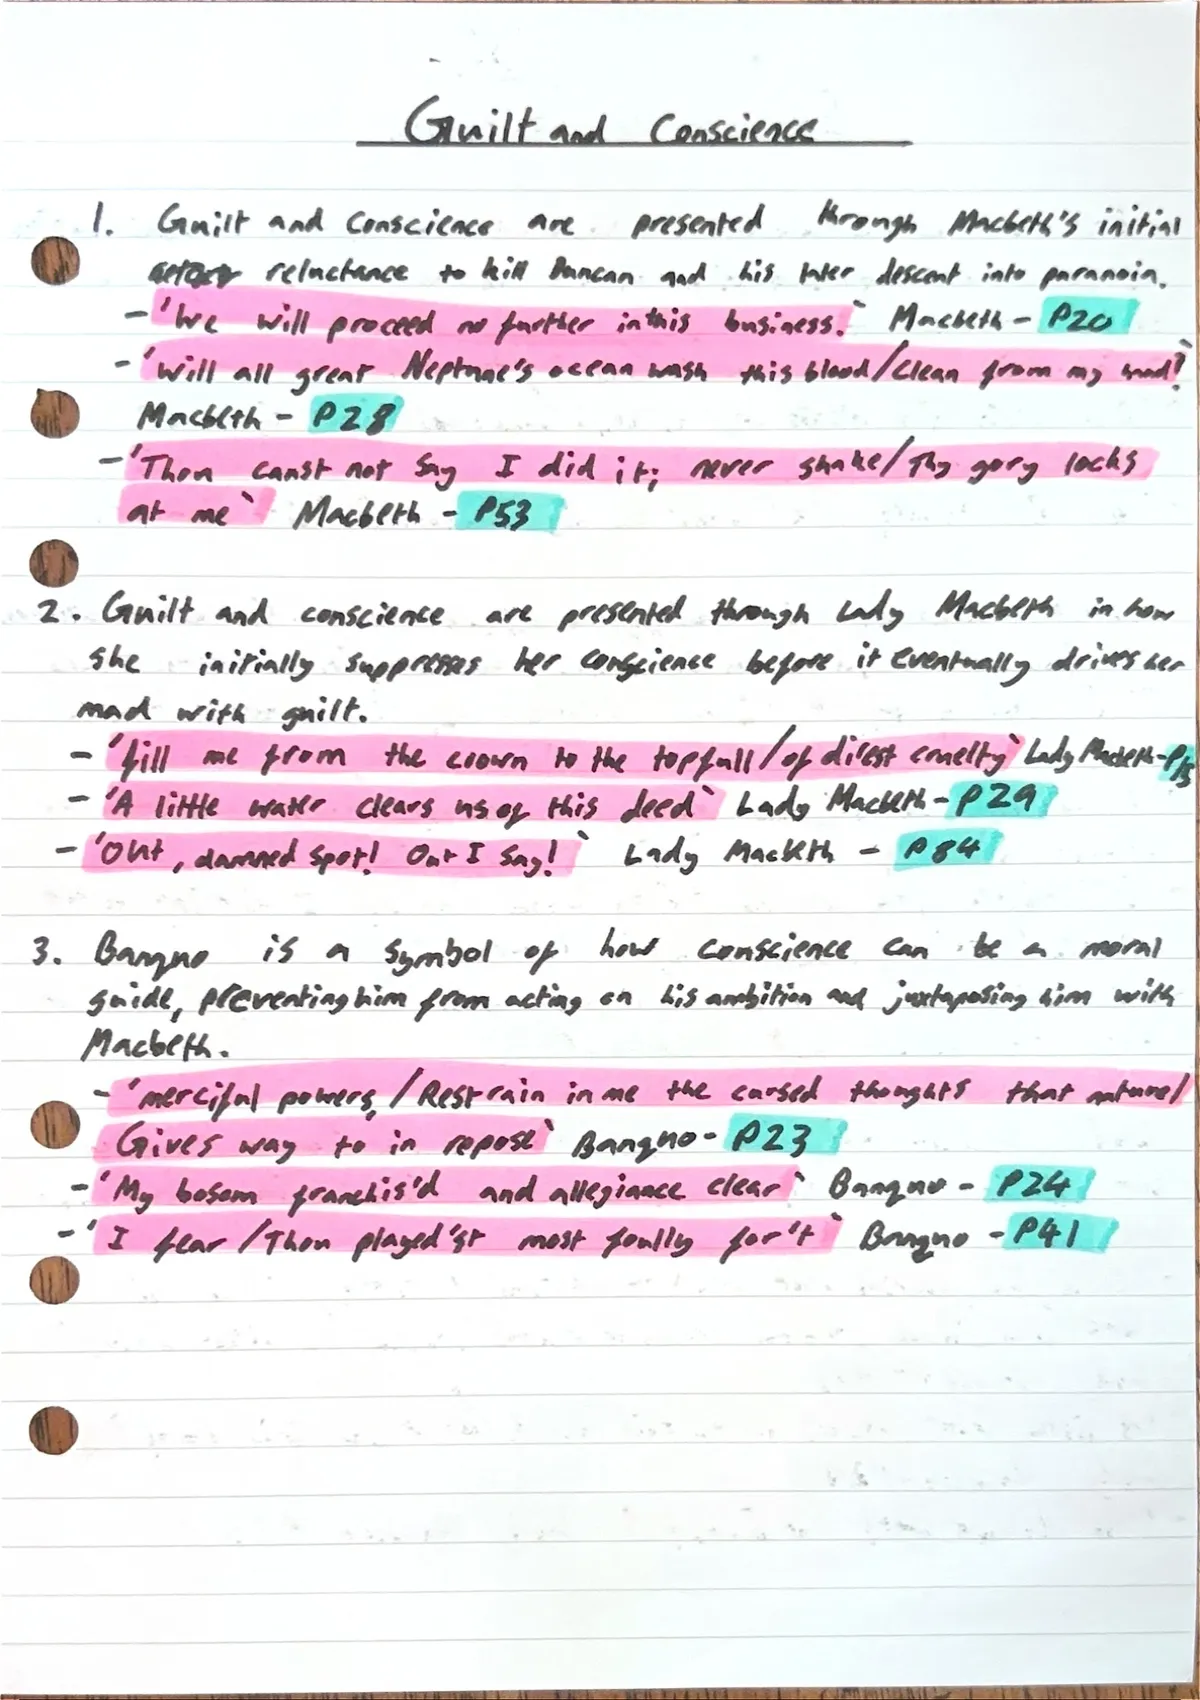 Guilt and Conscience
1. Guilt and Conscience are presented through Macbeth's initial
reluctance to kill Duncan and his later descent into paranoia.
- 'We will proceed no further in this business.' Macbeth - P20
- 'Will all great Neptune's ocean wash this blood/Clean from my hand?'
Macbeth - P28
- 'Thou canst not say I did it; never shake/Thy gory locks
at me' Macbeth - P53
2. Guilt and conscience are presented through Lady Macbeth in how
she initially suppresses her conscience before it eventually drives her
mad with guilt.
- 'fill me from the crown to the topfull/of direst cruelty' Lady Macbeth - P15
- 'A little water clears us of this deed' Lady Macbeth - P29
- 'Out, damned spot! Out I say!' Lady Macbeth - P84
3. Banquo is a symbol of how conscience can be a moral
guide, preventing him from acting on his ambition and juxtaposing him with
Macbeth.
- 'merciful powers,/Restrain in me the cursed thoughts that nature/
Gives way to in repose' Banquo - P23
- 'My bosom franchis'd and allegiance clear' Banquo - P24
- 'I fear/Thou played'st most foully for't' Banquo - P41